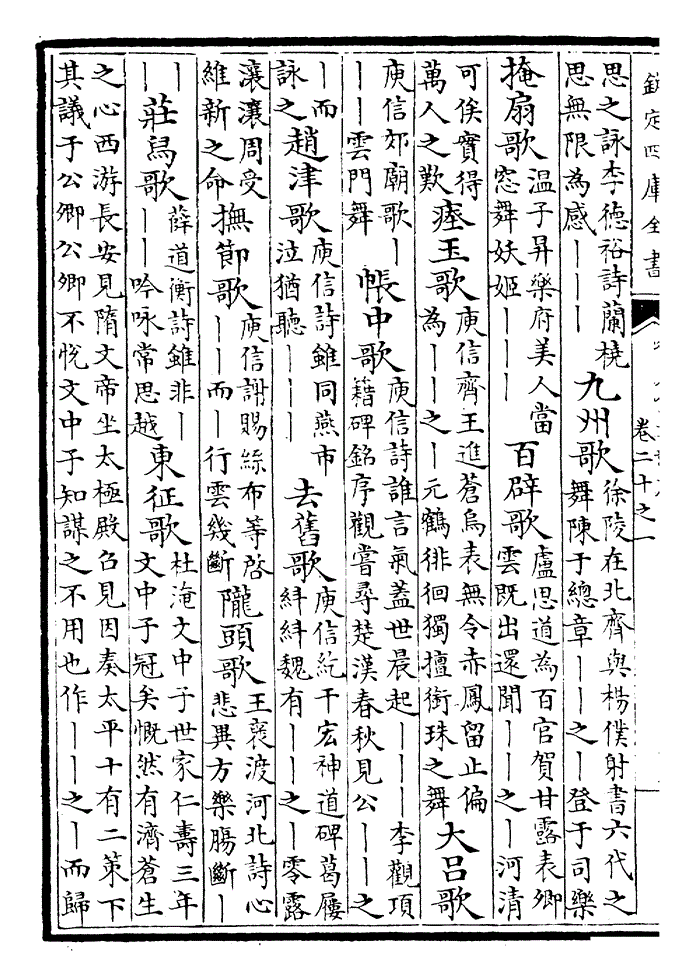 欽定四庫全書
卷二十之一
思之詠李德裕詩蘭橈
思無限為感｜｜｜
九州歌
徐陵在北齊與楊僕射書六代之
舞陳于總章｜｜之｜登于司樂
掩扇歌
温子昇樂府美人當
窓舞妖姬｜｜｜
百辟歌
盧思道為百官賀甘露表卿
雲既出還聞｜｜之｜河清
可俟實得
萬人之歎
瘞玉歌
庾信齊王進蒼烏表無令赤鳳留止偏
為｜｜之｜元鶴徘徊獨擅銜珠之舞
大吕歌
庾信郊廟歌｜
｜｜雲門舞
帳中歌
庾信詩誰言氣蓋世晨起｜｜｜李觀項
籍碑銘序觀嘗尋楚漢春秋見公｜｜之
｜而
詠之
趙津歌
庾信詩雖同燕市
泣猶聽｜｜｜
去舊歌
庾信紇干宏神道碑葛屨
紏紏魏有｜｜之｜零露
瀼瀼周受
維新之命
撫節歌
庾信謝賜絲布等啓
｜｜而｜行雲幾斷
隴頭歌
王裒渡河北詩心
悲異方樂腸斷｜
｜
｜
莊舄歌
薛道衡詩雖非｜
｜吟咏常思越
東征歌
杜淹文中子世家仁壽三年
文中子冠矣慨然有濟蒼生
之心西游長安見隋文帝坐太極殿召見因奏太平十有二策下
其議于公卿公卿不悅文中子知謀之不用也作｜｜之｜而歸